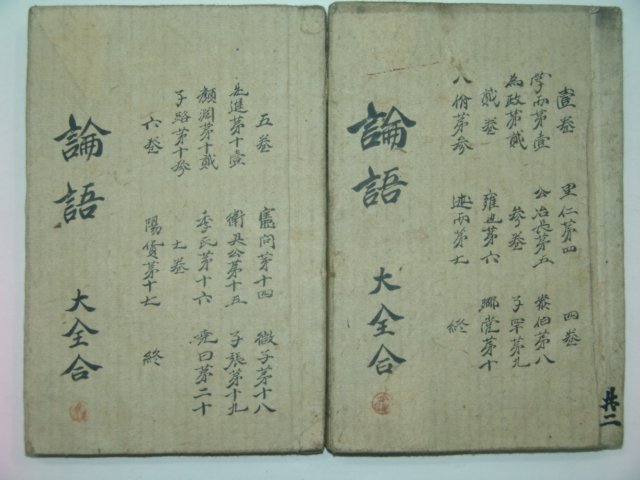 共二
壹卷 里仁第四 四卷
學而第壹 公冶長第五 泰伯第八
為政第貳 參卷 子罕第九
貳卷 雍也第六 鄉黨第十
八佾第參 述而第七 終
論語 大全合
五卷 憲問第十四 微子第十八
先進第十壹 衛灵公第十五 子張第十九
顏淵第十貳 季氏第十六 堯曰第二十
子路第十參 七卷
六卷 陽貨第十七 終
論語 大全合